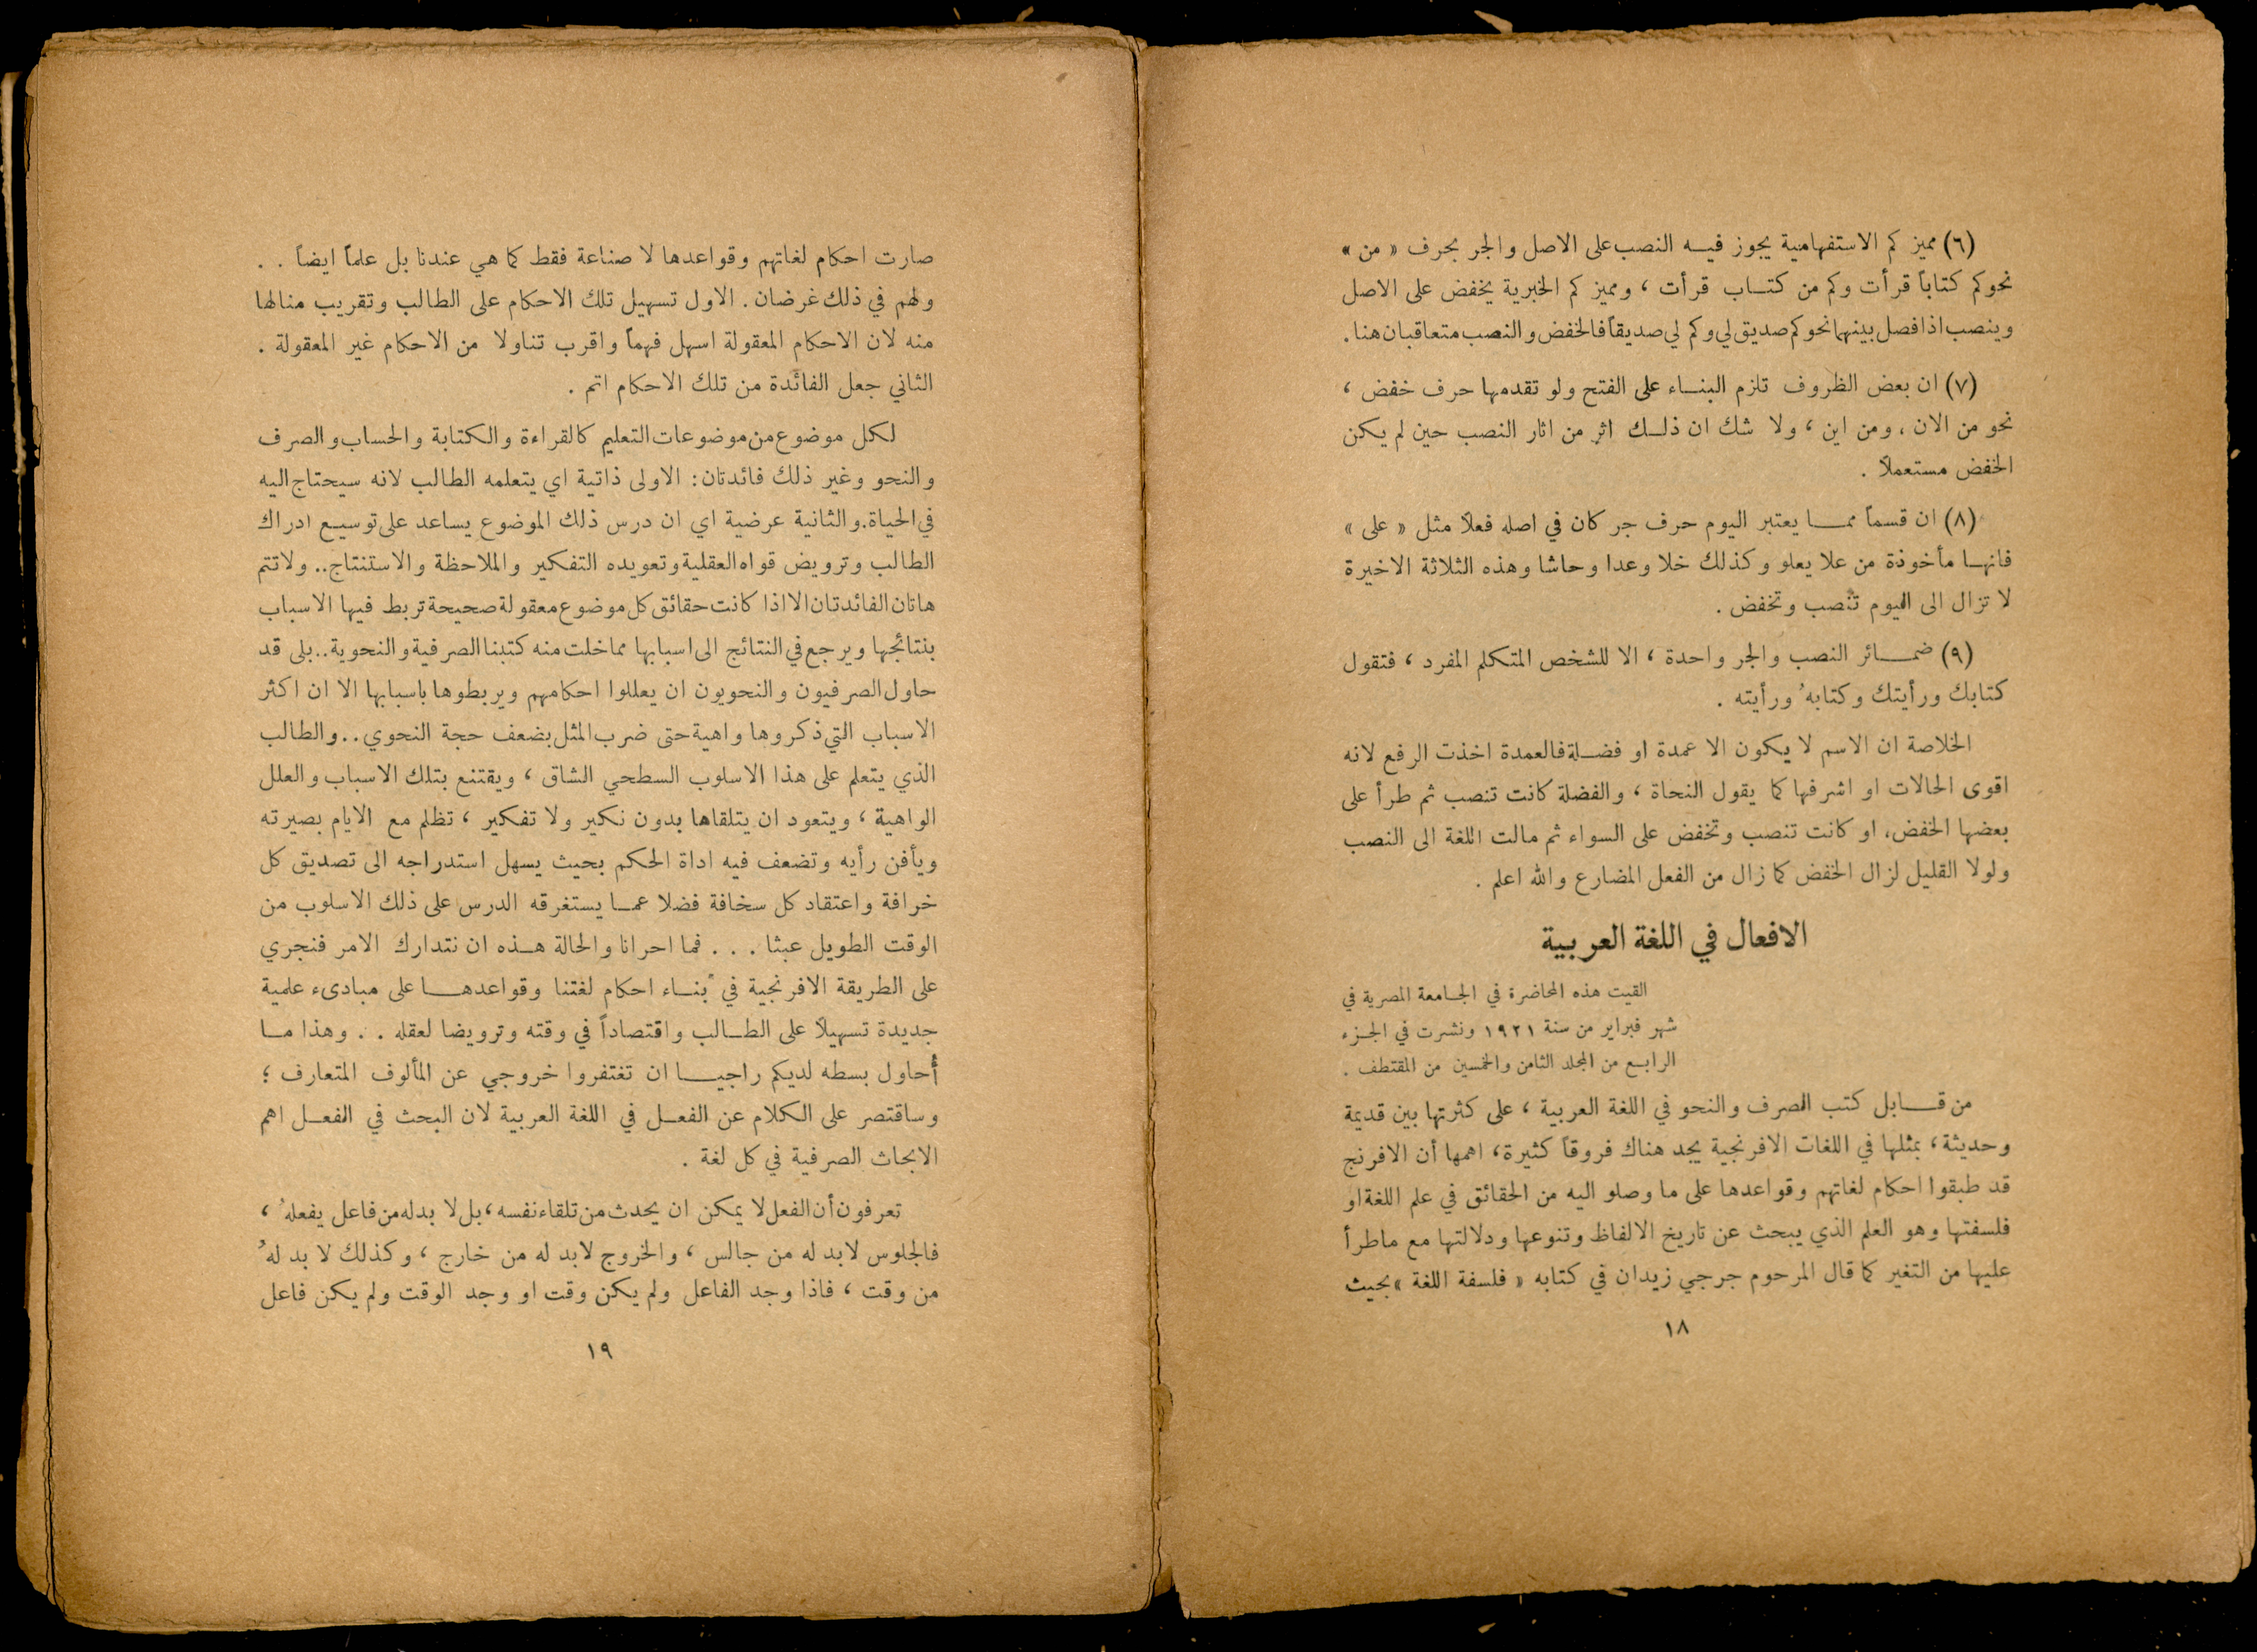 (٦) مميز كم الاستفهامية يجوز فيه النصب على الاصل والجر بحرف « من »
نحو كم كتاباً قرأت وكم من كتاب قرأت ، ومميز كم الخبرية يخفض على الاصل
وينصب اذا فصل بينهما نحو كم صديق لي وكم لي صديقاً فالخفض والنصب متعاقبان هنا .
(٧) ان بعض الظروف تلزم البناء على الفتح ولو تقدمها حرف خفض ،
نحو من الان ، ومن اين ، ولا شك ان ذلك اثر من اثار النصب حين لم يكن
الخفض مستعملاً .
(٨) ان قسماً مما يعتبر اليوم حرف جر كان في اصله فعلاً مثل « على »
فانها مأخوذة من علا يعلو وكذلك خلا وعدا وحاشا وهذه الثلاثة الاخيرة
لا تزال الى اليوم تنصب وتخفض .
(٩) ضمائر النصب والجر واحدة ، الا للشخص المتكلم المفرد ، فتقول
كتابك ورأيتك وكتابهُ ورأيته .
الخلاصة ان الاسم لا يكون الا عمدة او فضلة فالعمدة اخذت الرفع لانه
اقوى الحالات او اشرفها كما يقول النحاة ، والفضلة كانت تنصب ثم طرأ على
بعضها الخفض، او كانت تنصب وتخفض على السواء ثم مالت اللغة الى النصب
ولولا القليل لزال الخفض كما زال من الفعل المضارع والله اعلم .
الافعال في اللغة العربية
القيت هذه المحاضرة في الجامعة المصرية في
شهر فبراير من سنة ١٩٢١ ونشرت في الجزء
الرابع من المجلد الثامن والخمسين من المقتطف .
من قابل كتب الصرف والنحو في اللغة العربية ، على كثرتها بين قديمة
وحديثة ، بمثلها في اللغات الافرنجية يجد هناك فروقاً كثيرة ، اهمها أن الافرنج
قد طبقوا احكام لغاتهم وقواعدها على ما وصلو اليه من الحقائق في علم اللغة او
فلسفتها وهو العلم الذي يبحث عن تاريخ الالفاظ وتنوعها ودلالتها مع ماطرأ
عليها من التغير كما قال المرحوم جرجي زيدان في كتابه « فلسفة اللغة » بحيث
١٨
صارت احكام لغاتهم وقواعدها لا صناعة فقط كما هي عندنا بل علماً ايضاً . .
ولهم في ذلك غرضان . الاول تسهيل تلك الاحكام على الطالب وتقريب منالها
منه لان الاحكام المعقولة اسهل فهماً واقرب تناولا من الاحكام غير المعقولة .
الثاني جعل الفائدة من تلك الاحكام اتم .
لكل موضوع من موضوعات التعليم كالقراءة والكتابة والحساب والصرف
والنحو وغير ذلك فائدتان : الاولى ذاتية اي يتعلمه الطالب لانه سيحتاج اليه
في الحياة. والثانية عرضية اي ان درس ذلك الموضوع يساعد على توسيع ادراك
الطالب وترويض قواه العقلية وتعويده التفكير والملاحظة والاستنتاج .. ولا تتم
هاتان الفائدتان الا اذا كانت حقائق كل موضوع معقولة صحيحة تربط فيها الاسباب
بنتائجها ويرجع في النتائج الى اسبابها مما خلت منه كتبنا الصرفية والنحوية .. بلى قد
حاول الصرفيون والنحويون ان يعللوا احكامهم ويربطوها باسبابها الا ان اكثر
الاسباب التي ذكروها واهية حتى ضرب المثل بضعف حجة النحوي . . والطالب
الذي يتعلم على هذا الاسلوب السطحي الشاق ، ويقتنع بتلك الاسباب والعلل
الواهية ، ويتعود ان يتلقاها بدون نكير ولا تفكير ، تظلم مع الايام بصيرته
ويأفن رأيه وتضعف فيه اداة الحكم بحيث يسهل استدراجه الى تصديق كل
خرافة واعتقاد كل سخافة فضلا عما يستغرقه الدرس على ذلك الاسلوب من
الوقت الطويل عبثا . . . فما احرانا والحالة هذه ان نتدارك الامر فنجري
على الطريقة الافرنجية في بناء احكام لغتنا وقواعدها على مبادىء علمية
جديدة تسهيلاً على الطالب واقتصاداً في وقته وترويضا لعقله . . وهذا ما
أُحاول بسطه لديكم راجيا ان تغتفروا خروجي عن المألوف المتعارف ؛
وساقتصر على الكلام عن الفعل في اللغة العربية لان البحث في الفعل اهم
الابحاث الصرفية في كل لغة .
تعرفون أن الفعل لا يمكن ان يحدث من تلقاء نفسه ، بل لا بد له من فاعل يفعلهُ ،
فالجلوس لابد له من جالس ، والخروج لابد له من خارج ، وكذلك لا بد لهُ
من وقت ، فاذا وجد الفاعل ولم يكن وقت او وجد الوقت ولم يكن فاعل
١٩